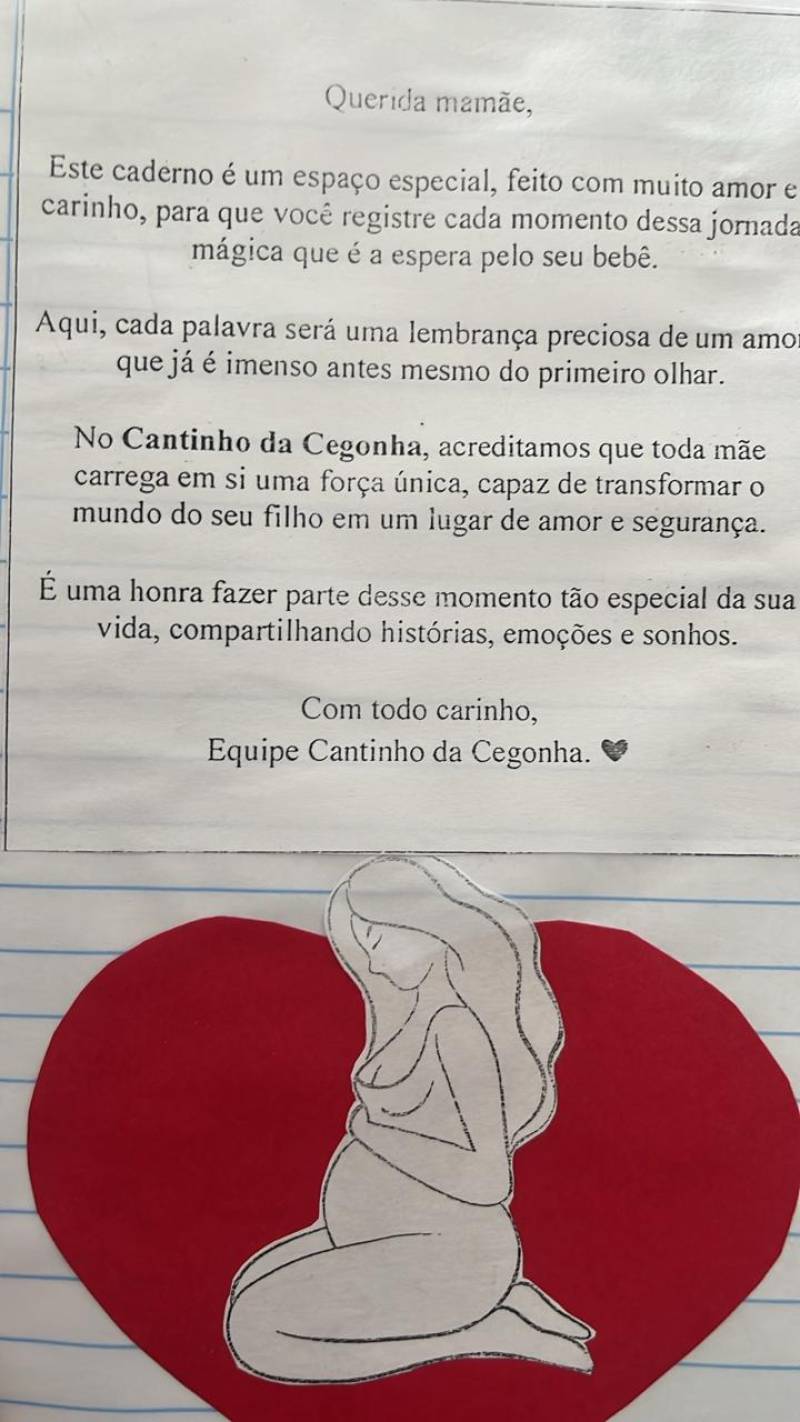 Querida mamãe,
Este caderno é um espaço especial, feito com muito amor e
carinho, para que você registre cada momento dessa jornada
mágica que é a espera pelo seu bebê.
Aqui, cada palavra será uma lembrança preciosa de um amor
que já é imenso antes mesmo do primeiro olhar.
No Cantinho da Cegonha, acreditamos que toda mãe
carrega em si uma força única, capaz de transformar o
mundo do seu filho em um lugar de amor e segurança.
É uma honra fazer parte desse momento tão especial da sua
vida, compartilhando histórias, emoções e sonhos.
Com todo carinho,
Equipe Cantinho da Cegonha. ♥